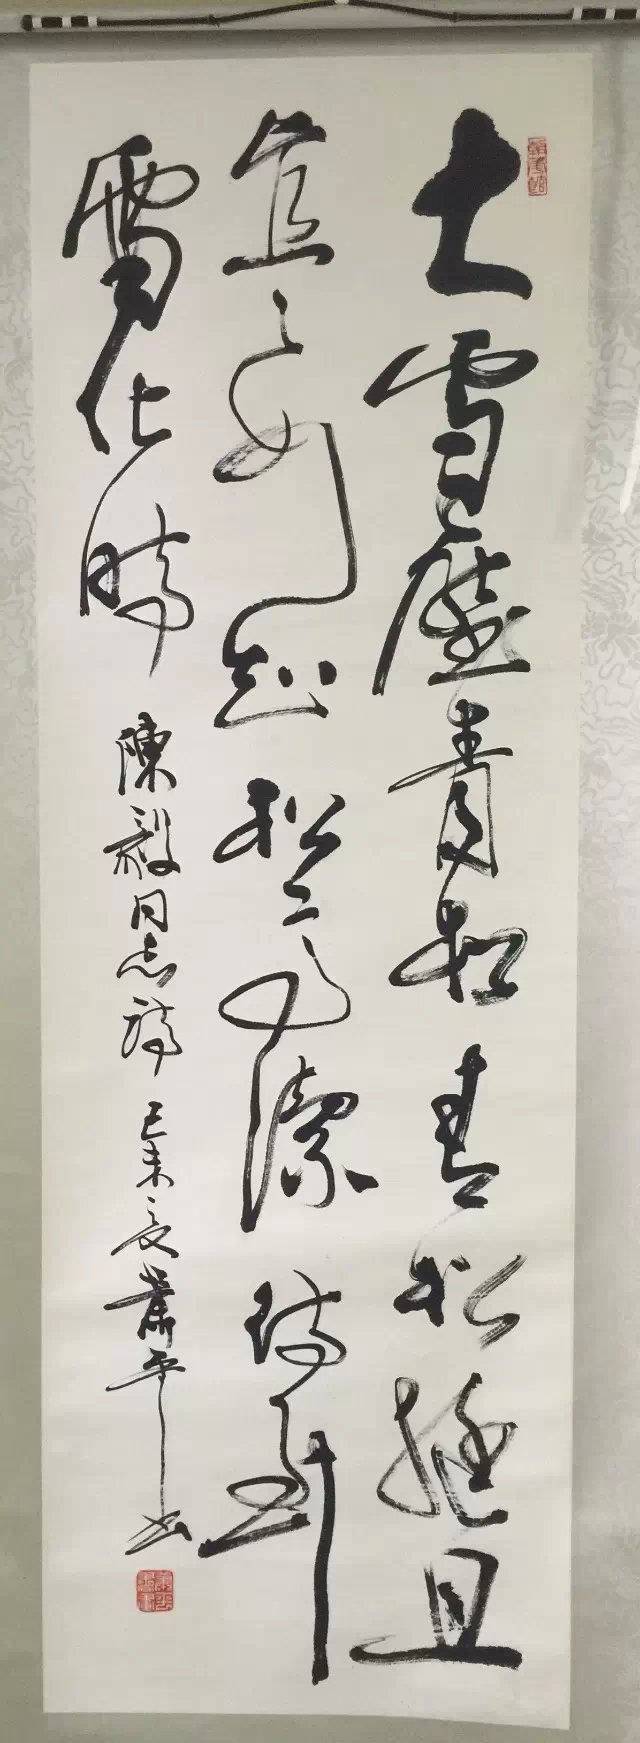 大雪壓青松青松挺且
直要知松高潔待到
雪化時
陳毅同志詩 己未夏 蕭平書